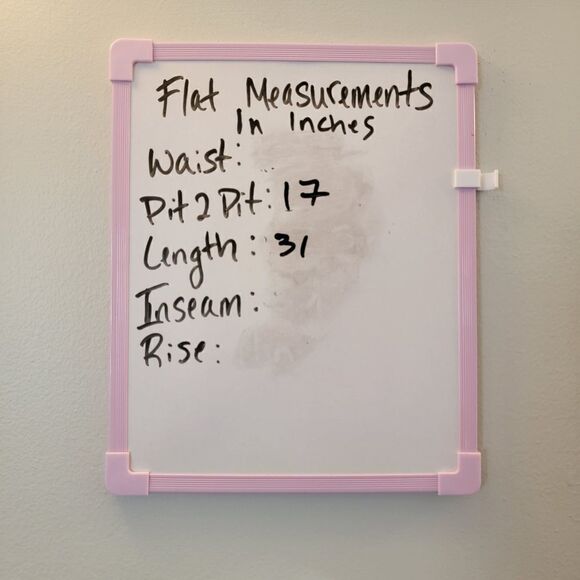 Flat Measurements
In Inches
Waist:
Pit 2 Pit: 17
Length: 31
Inseam:
Rise: